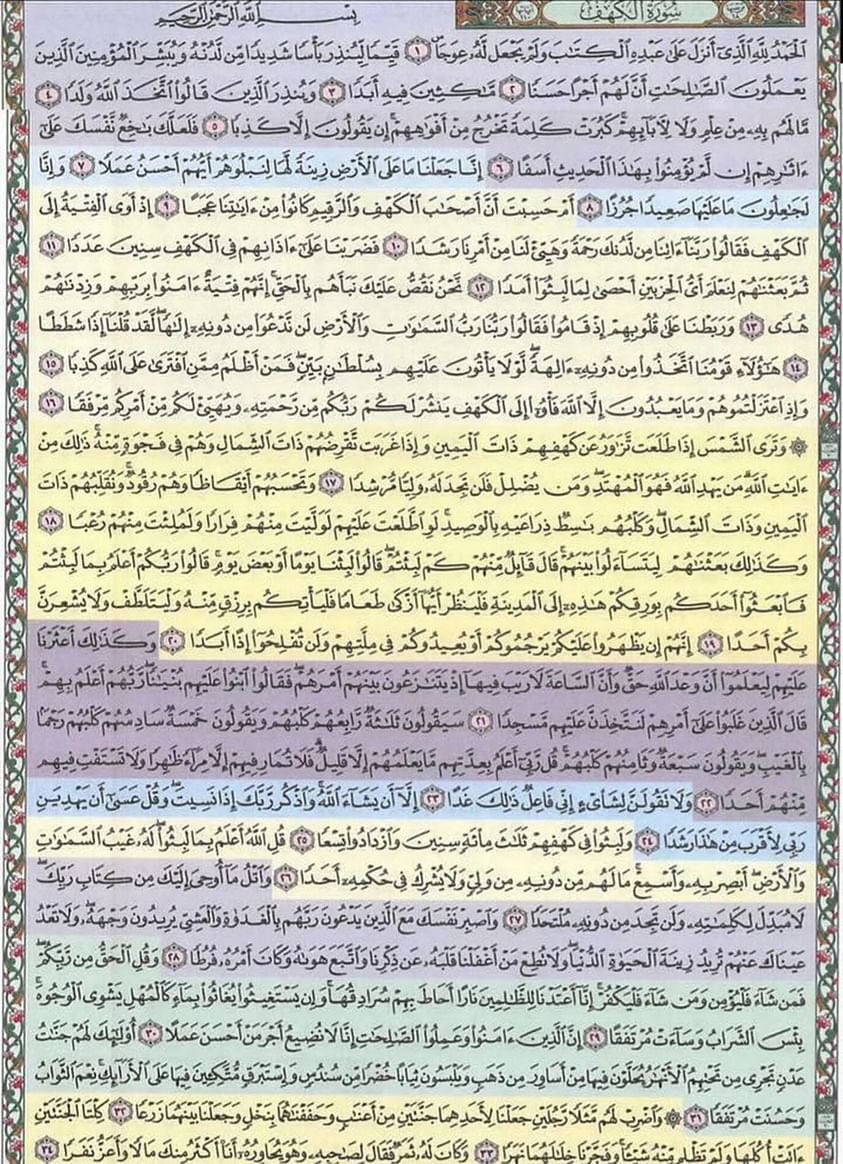 سُورَةُ الكَهْفِ
بِسْمِ اللَّهِ الرَّحْمَٰنِ الرَّحِيمِ
الْحَمْدُ لِلَّهِ الَّذِي أَنزَلَ عَلَىٰ عَبْدِهِ الْكِتَابَ وَلَمْ يَجْعَل لَّهُ عِوَجًا ١ قَيِّمًا لِّيُنذِرَ بَأْسًا شَدِيدًا مِّن لَّدُنْهُ وَيُبَشِّرَ الْمُؤْمِنِينَ الَّذِينَ
يَعْمَلُونَ الصَّالِحَاتِ أَنَّ لَهُمْ أَجْرًا حَسَنًا ٢ مَّاكِثِينَ فِيهِ أَبَدًا ٣ وَيُنذِرَ الَّذِينَ قَالُوا اتَّخَذَ اللَّهُ وَلَدًا ٤
مَّا لَهُم بِهِ مِنْ عِلْمٍ وَلَا لِآبَائِهِمْ كَبُرَتْ كَلِمَةً تَخْرُجُ مِنْ أَفْوَاهِهِمْ إِن يَقُولُونَ إِلَّا كَذِبًا ٥ فَلَعَلَّكَ بَاخِعٌ نَّفْسَكَ عَلَىٰ
آثَارِهِمْ إِن لَّمْ يُؤْمِنُوا بِهَٰذَا الْحَدِيثِ أَسَفًا ٦ إِنَّا جَعَلْنَا مَا عَلَى الْأَرْضِ زِينَةً لَّهَا لِنَبْلُوَهُمْ أَيُّهُمْ أَحْسَنُ عَمَلًا ٧ وَإِنَّا
لَجَاعِلُونَ مَا عَلَيْهَا صَعِيدًا جُرُزًا ٨ أَمْ حَسِبْتَ أَنَّ أَصْحَابَ الْكَهْفِ وَالرَّقِيمِ كَانُوا مِنْ آيَاتِنَا عَجَبًا ٩ إِذْ أَوَى الْفِتْيَةُ إِلَى
الْكَهْفِ فَقَالُوا رَبَّنَا آتِنَا مِن لَّدُنكَ رَحْمَةً وَهَيِّئْ لَنَا مِنْ أَمْرِنَا رَشَدًا ١٠ فَضَرَبْنَا عَلَىٰ آذَانِهِمْ فِي الْكَهْفِ سِنِينَ عَدَدًا ١١
ثُمَّ بَعَثْنَاهُمْ لِنَعْلَمَ أَيُّ الْحِزْبَيْنِ أَحْصَىٰ لِمَا لَبِثُوا أَمَدًا ١٢ نَّحْنُ نَقُصُّ عَلَيْكَ نَبَأَهُم بِالْحَقِّ إِنَّهُمْ فِتْيَةٌ آمَنُوا بِرَبِّهِمْ وَزِدْنَاهُمْ
هُدًى ١٣ وَرَبَطْنَا عَلَىٰ قُلُوبِهِمْ إِذْ قَامُوا فَقَالُوا رَبُّنَا رَبُّ السَّمَاوَاتِ وَالْأَرْضِ لَن نَّدْعُوَ مِن دُونِهِ إِلَٰهًا لَّقَدْ قُلْنَا إِذًا شَطَطًا
١٤ هَٰؤُلَاءِ قَوْمُنَا اتَّخَذُوا مِن دُونِهِ آلِهَةً لَّوْلَا يَأْتُونَ عَلَيْهِم بِسُلْطَانٍ بَيِّنٍ فَمَنْ أَظْلَمُ مِمَّنِ افْتَرَىٰ عَلَى اللَّهِ كَذِبًا ١٥
وَإِذِ اعْتَزَلْتُمُوهُمْ وَمَا يَعْبُدُونَ إِلَّا اللَّهَ فَأْوُوا إِلَى الْكَهْفِ يَنشُرْ لَكُمْ رَبُّكُم مِّن رَّحْمَتِهِ وَيُهَيِّئْ لَكُم مِّنْ أَمْرِكُم مِّرْفَقًا ١٦
۞ وَتَرَى الشَّمْسَ إِذَا طَلَعَت تَّزَاوَرُ عَن كَهْفِهِمْ ذَاتَ الْيَمِينِ وَإِذَا غَرَبَت تَّقْرِضُهُمْ ذَاتَ الشِّمَالِ وَهُمْ فِي فَجْوَةٍ مِّنْهُ ذَٰلِكَ مِنْ
آيَاتِ اللَّهِ مَن يَهْدِ اللَّهُ فَهُوَ الْمُهْتَدِ وَمَن يُضْلِلْ فَلَن تَجِدَ لَهُ وَلِيًّا مُّرْشِدًا ١٧ وَتَحْسَبُهُمْ أَيْقَاظًا وَهُمْ رُقُودٌ وَنُقَلِّبُهُمْ ذَاتَ
الْيَمِينِ وَذَاتَ الشِّمَالِ وَكَلْبُهُم بَاسِطٌ ذِرَاعَيْهِ بِالْوَصِيدِ لَوِ اطَّلَعْتَ عَلَيْهِمْ لَوَلَّيْتَ مِنْهُمْ فِرَارًا وَلَمُلِئْتَ مِنْهُمْ رُعْبًا ١٨
وَكَذَٰلِكَ بَعَثْنَاهُمْ لِيَتَسَاءَلُوا بَيْنَهُمْ قَالَ قَائِلٌ مِّنْهُمْ كَمْ لَبِثْتُمْ قَالُوا لَبِثْنَا يَوْمًا أَوْ بَعْضَ يَوْمٍ قَالُوا رَبُّكُمْ أَعْلَمُ بِمَا لَبِثْتُمْ
فَابْعَثُوا أَحَدَكُم بِوَرِقِكُمْ هَٰذِهِ إِلَى الْمَدِينَةِ فَلْيَنظُرْ أَيُّهَا أَزْكَىٰ طَعَامًا فَلْيَأْتِكُم بِرِزْقٍ مِّنْهُ وَلْيَتَلَطَّفْ وَلَا يُشْعِرَنَّ
بِكُمْ أَحَدًا ١٩ إِنَّهُمْ إِن يَظْهَرُوا عَلَيْكُمْ يَرْجُمُوكُمْ أَوْ يُعِيدُوكُمْ فِي مِلَّتِهِمْ وَلَن تُفْلِحُوا إِذًا أَبَدًا ٢٠ وَكَذَٰلِكَ أَعْثَرْنَا
عَلَيْهِمْ لِيَعْلَمُوا أَنَّ وَعْدَ اللَّهِ حَقٌّ وَأَنَّ السَّاعَةَ لَا رَيْبَ فِيهَا إِذْ يَتَنَازَعُونَ بَيْنَهُمْ أَمْرَهُمْ فَقَالُوا ابْنُوا عَلَيْهِم بُنْيَانًا رَّبُّهُمْ أَعْلَمُ بِهِمْ
قَالَ الَّذِينَ غَلَبُوا عَلَىٰ أَمْرِهِمْ لَنَتَّخِذَنَّ عَلَيْهِم مَّسْجِدًا ٢١ سَيَقُولُونَ ثَلَاثَةٌ رَّابِعُهُمْ كَلْبُهُمْ وَيَقُولُونَ خَمْسَةٌ سَادِسُهُمْ كَلْبُهُمْ رَجْمًا
بِالْغَيْبِ وَيَقُولُونَ سَبْعَةٌ وَثَامِنُهُمْ كَلْبُهُمْ قُل رَّبِّي أَعْلَمُ بِعِدَّتِهِم مَّا يَعْلَمُهُمْ إِلَّا قَلِيلٌ فَلَا تُمَارِ فِيهِمْ إِلَّا مِرَاءً ظَاهِرًا وَلَا تَسْتَفْتِ فِيهِم
مِّنْهُمْ أَحَدًا ٢٢ وَلَا تَقُولَنَّ لِشَيْءٍ إِنِّي فَاعِلٌ ذَٰلِكَ غَدًا ٢٣ إِلَّا أَن يَشَاءَ اللَّهُ وَاذْكُر رَّبَّكَ إِذَا نَسِيتَ وَقُلْ عَسَىٰ أَن يَهْدِيَنِ
رَبِّي لِأَقْرَبَ مِنْ هَٰذَا رَشَدًا ٢٤ وَلَبِثُوا فِي كَهْفِهِمْ ثَلَاثَ مِائَةٍ سِنِينَ وَازْدَادُوا تِسْعًا ٢٥ قُلِ اللَّهُ أَعْلَمُ بِمَا لَبِثُوا لَهُ غَيْبُ السَّمَاوَاتِ
وَالْأَرْضِ أَبْصِرْ بِهِ وَأَسْمِعْ مَا لَهُم مِّن دُونِهِ مِن وَلِيٍّ وَلَا يُشْرِكُ فِي حُكْمِهِ أَحَدًا ٢٦ وَاتْلُ مَا أُوحِيَ إِلَيْكَ مِن كِتَابِ رَبِّكَ
لَا مُبَدِّلَ لِكَلِمَاتِهِ وَلَن تَجِدَ مِن دُونِهِ مُلْتَحَدًا ٢٧ وَاصْبِرْ نَفْسَكَ مَعَ الَّذِينَ يَدْعُونَ رَبَّهُم بِالْغَدَاةِ وَالْعَشِيِّ يُرِيدُونَ وَجْهَهُ وَلَا تَعْدُ
عَيْنَاكَ عَنْهُمْ تُرِيدُ زِينَةَ الْحَيَاةِ الدُّنْيَا وَلَا تُطِعْ مَنْ أَغْفَلْنَا قَلْبَهُ عَن ذِكْرِنَا وَاتَّبَعَ هَوَاهُ وَكَانَ أَمْرُهُ فُرُطًا ٢٨ وَقُلِ الْحَقُّ مِن رَّبِّكُمْ
فَمَن شَاءَ فَلْيُؤْمِن وَمَن شَاءَ فَلْيَكْفُرْ إِنَّا أَعْتَدْنَا لِلظَّالِمِينَ نَارًا أَحَاطَ بِهِمْ سُرَادِقُهَا وَإِن يَسْتَغِيثُوا يُغَاثُوا بِمَاءٍ كَالْمُهْلِ يَشْوِي الْوُجُوهَ
بِئْسَ الشَّرَابُ وَسَاءَتْ مُرْتَفَقًا ٢٩ إِنَّ الَّذِينَ آمَنُوا وَعَمِلُوا الصَّالِحَاتِ إِنَّا لَا نُضِيعُ أَجْرَ مَنْ أَحْسَنَ عَمَلًا ٣٠ أُولَٰئِكَ لَهُمْ جَنَّاتُ
عَدْنٍ تَجْرِي مِن تَحْتِهِمُ الْأَنْهَارُ يُحَلَّوْنَ فِيهَا مِنْ أَسَاوِرَ مِن ذَهَبٍ وَيَلْبَسُونَ ثِيَابًا خُضْرًا مِّن سُندُسٍ وَإِسْتَبْرَقٍ مُّتَّكِئِينَ فِيهَا عَلَى الْأَرَائِكِ نِعْمَ الثَّوَابُ
وَحَسُنَتْ مُرْتَفَقًا ٣١ ۞ وَاضْرِبْ لَهُم مَّثَلًا رَّجُلَيْنِ جَعَلْنَا لِأَحَدِهِمَا جَنَّتَيْنِ مِنْ أَعْنَابٍ وَحَفَفْنَاهُمَا بِنَخْلٍ وَجَعَلْنَا بَيْنَهُمَا زَرْعًا ٣٢ كِلْتَا الْجَنَّتَيْنِ
آتَتْ أُكُلَهَا وَلَمْ تَظْلِم مِّنْهُ شَيْئًا وَفَجَّرْنَا خِلَالَهُمَا نَهَرًا ٣٣ وَكَانَ لَهُ ثَمَرٌ فَقَالَ لِصَاحِبِهِ وَهُوَ يُحَاوِرُهُ أَنَا أَكْثَرُ مِنكَ مَالًا وَأَعَزُّ نَفَرًا ٣٤